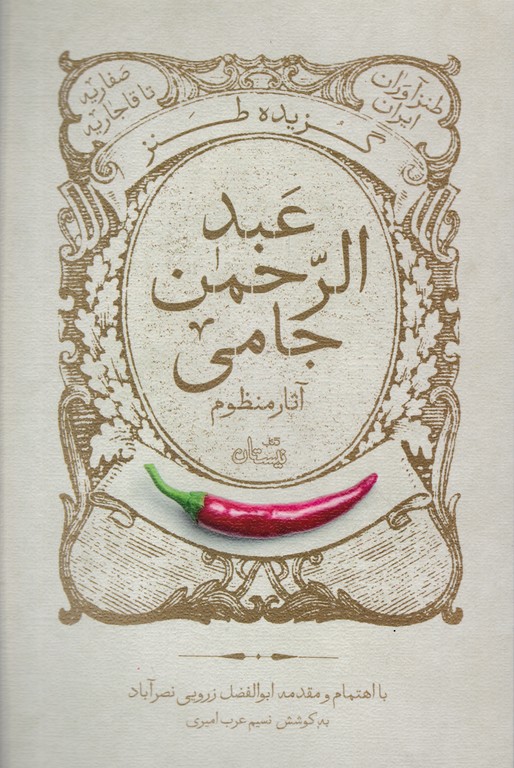 طنزآوران
ایران
صفاریه
تا قاجاریه
گزیده طنز
عَبد
الرّحمن
جامی
آثار منظوم
کتاب
نیستان
با اهتمام و مقدمه ابوالفضل زرویی نصرآباد
به کوشش نسیم عرب امیری